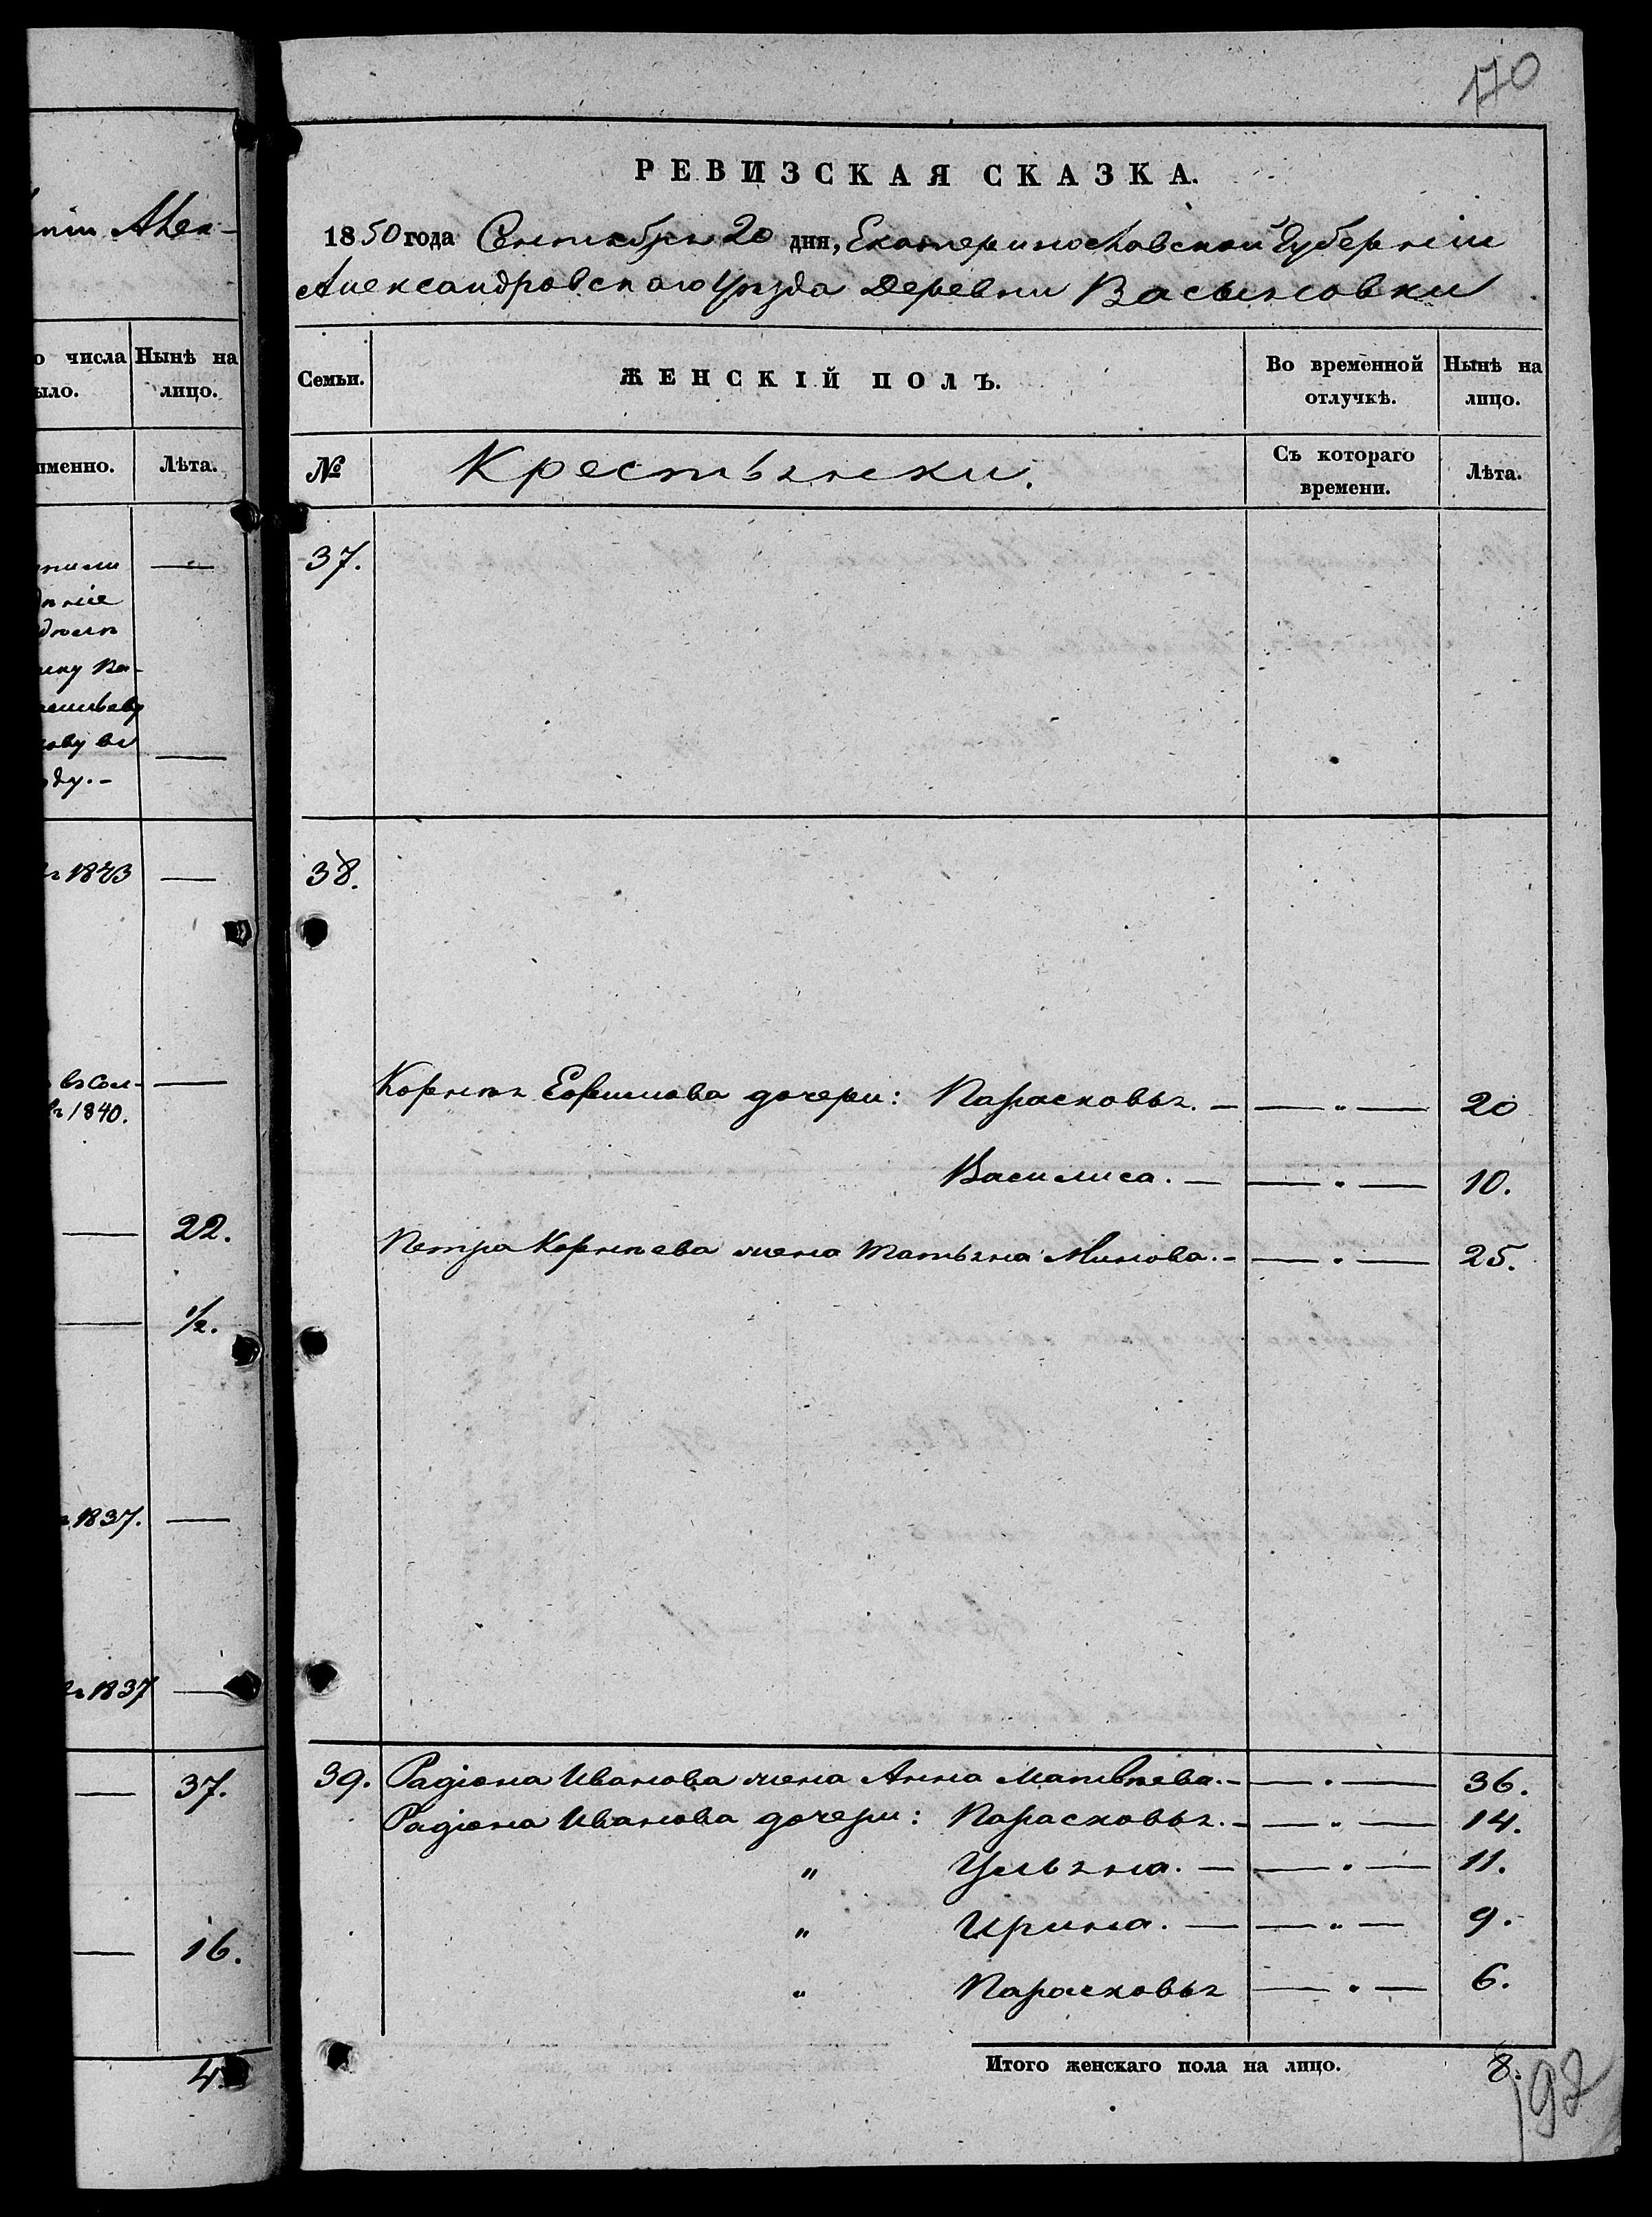 нии Алек-
о числа Нынѣ на
ыло. лицо.
именно. Лѣта.
г 1843 —
22.
1/2.
1840.
1837.
1837
37.
16.
4
170
РЕВИЗСКАЯ СКАЗКА.
1850 года Сентября 20 дня, Екатеринославской Губерніи
Александровскаго Уѣзда Деревни Васьновки
Семьи. ЖЕНСКІЙ ПОЛЪ. Во временной отлучкѣ. Нынѣ на лицо.
№ Крестьянки. Съ котораго времени. Лѣта.
37.
38.
Корнѣя Ефимова дочери: Парасковья. — — " — 20
Василиса. — — " — 10.
Петра Корнѣева жена Татьяна Минова. - — " — 25.
39. Радіона Иванова жена Анна Матвѣева. - — " — 36.
Радіона Иванова дочери: Парасковья. - — " — 14.
" Ульяна. — — " — 11.
" Ирина. — — " — 9.
" Парасковья — " — 6.
Итого женскаго пола на лицо. 8.